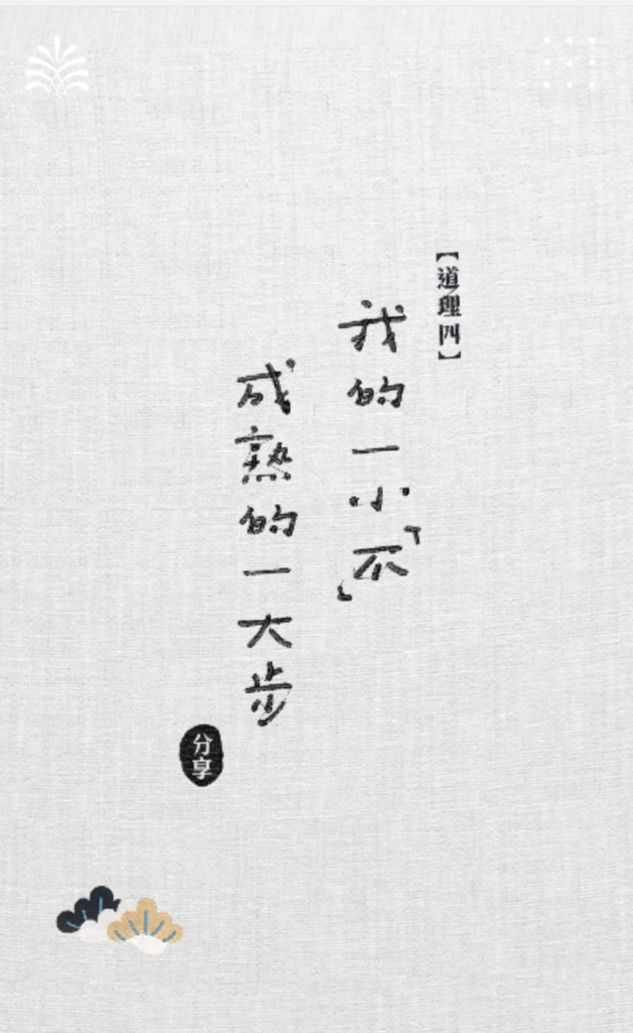 【道理四】
我的一小「不」
成熟的一大步
分享